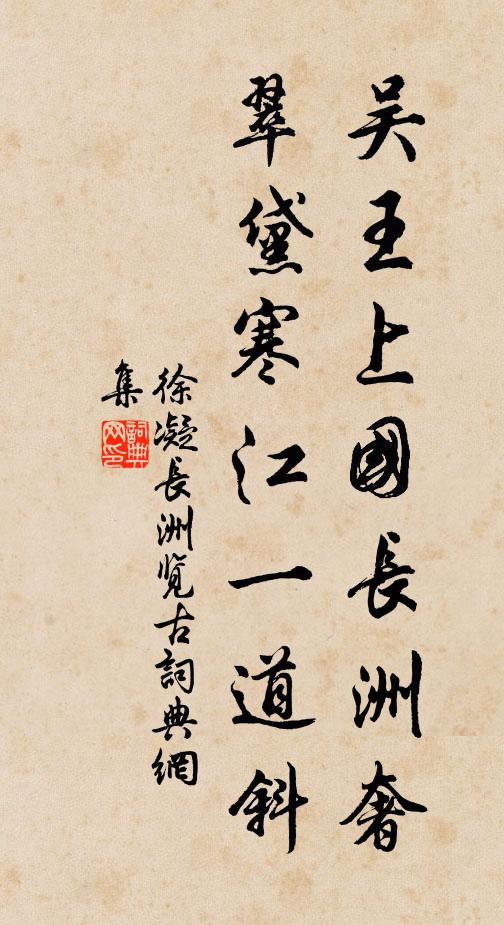 吴王上國長洲奢
翠黛寒江一道斜
徐凝長洲览古詞典網
集
詞典
网印